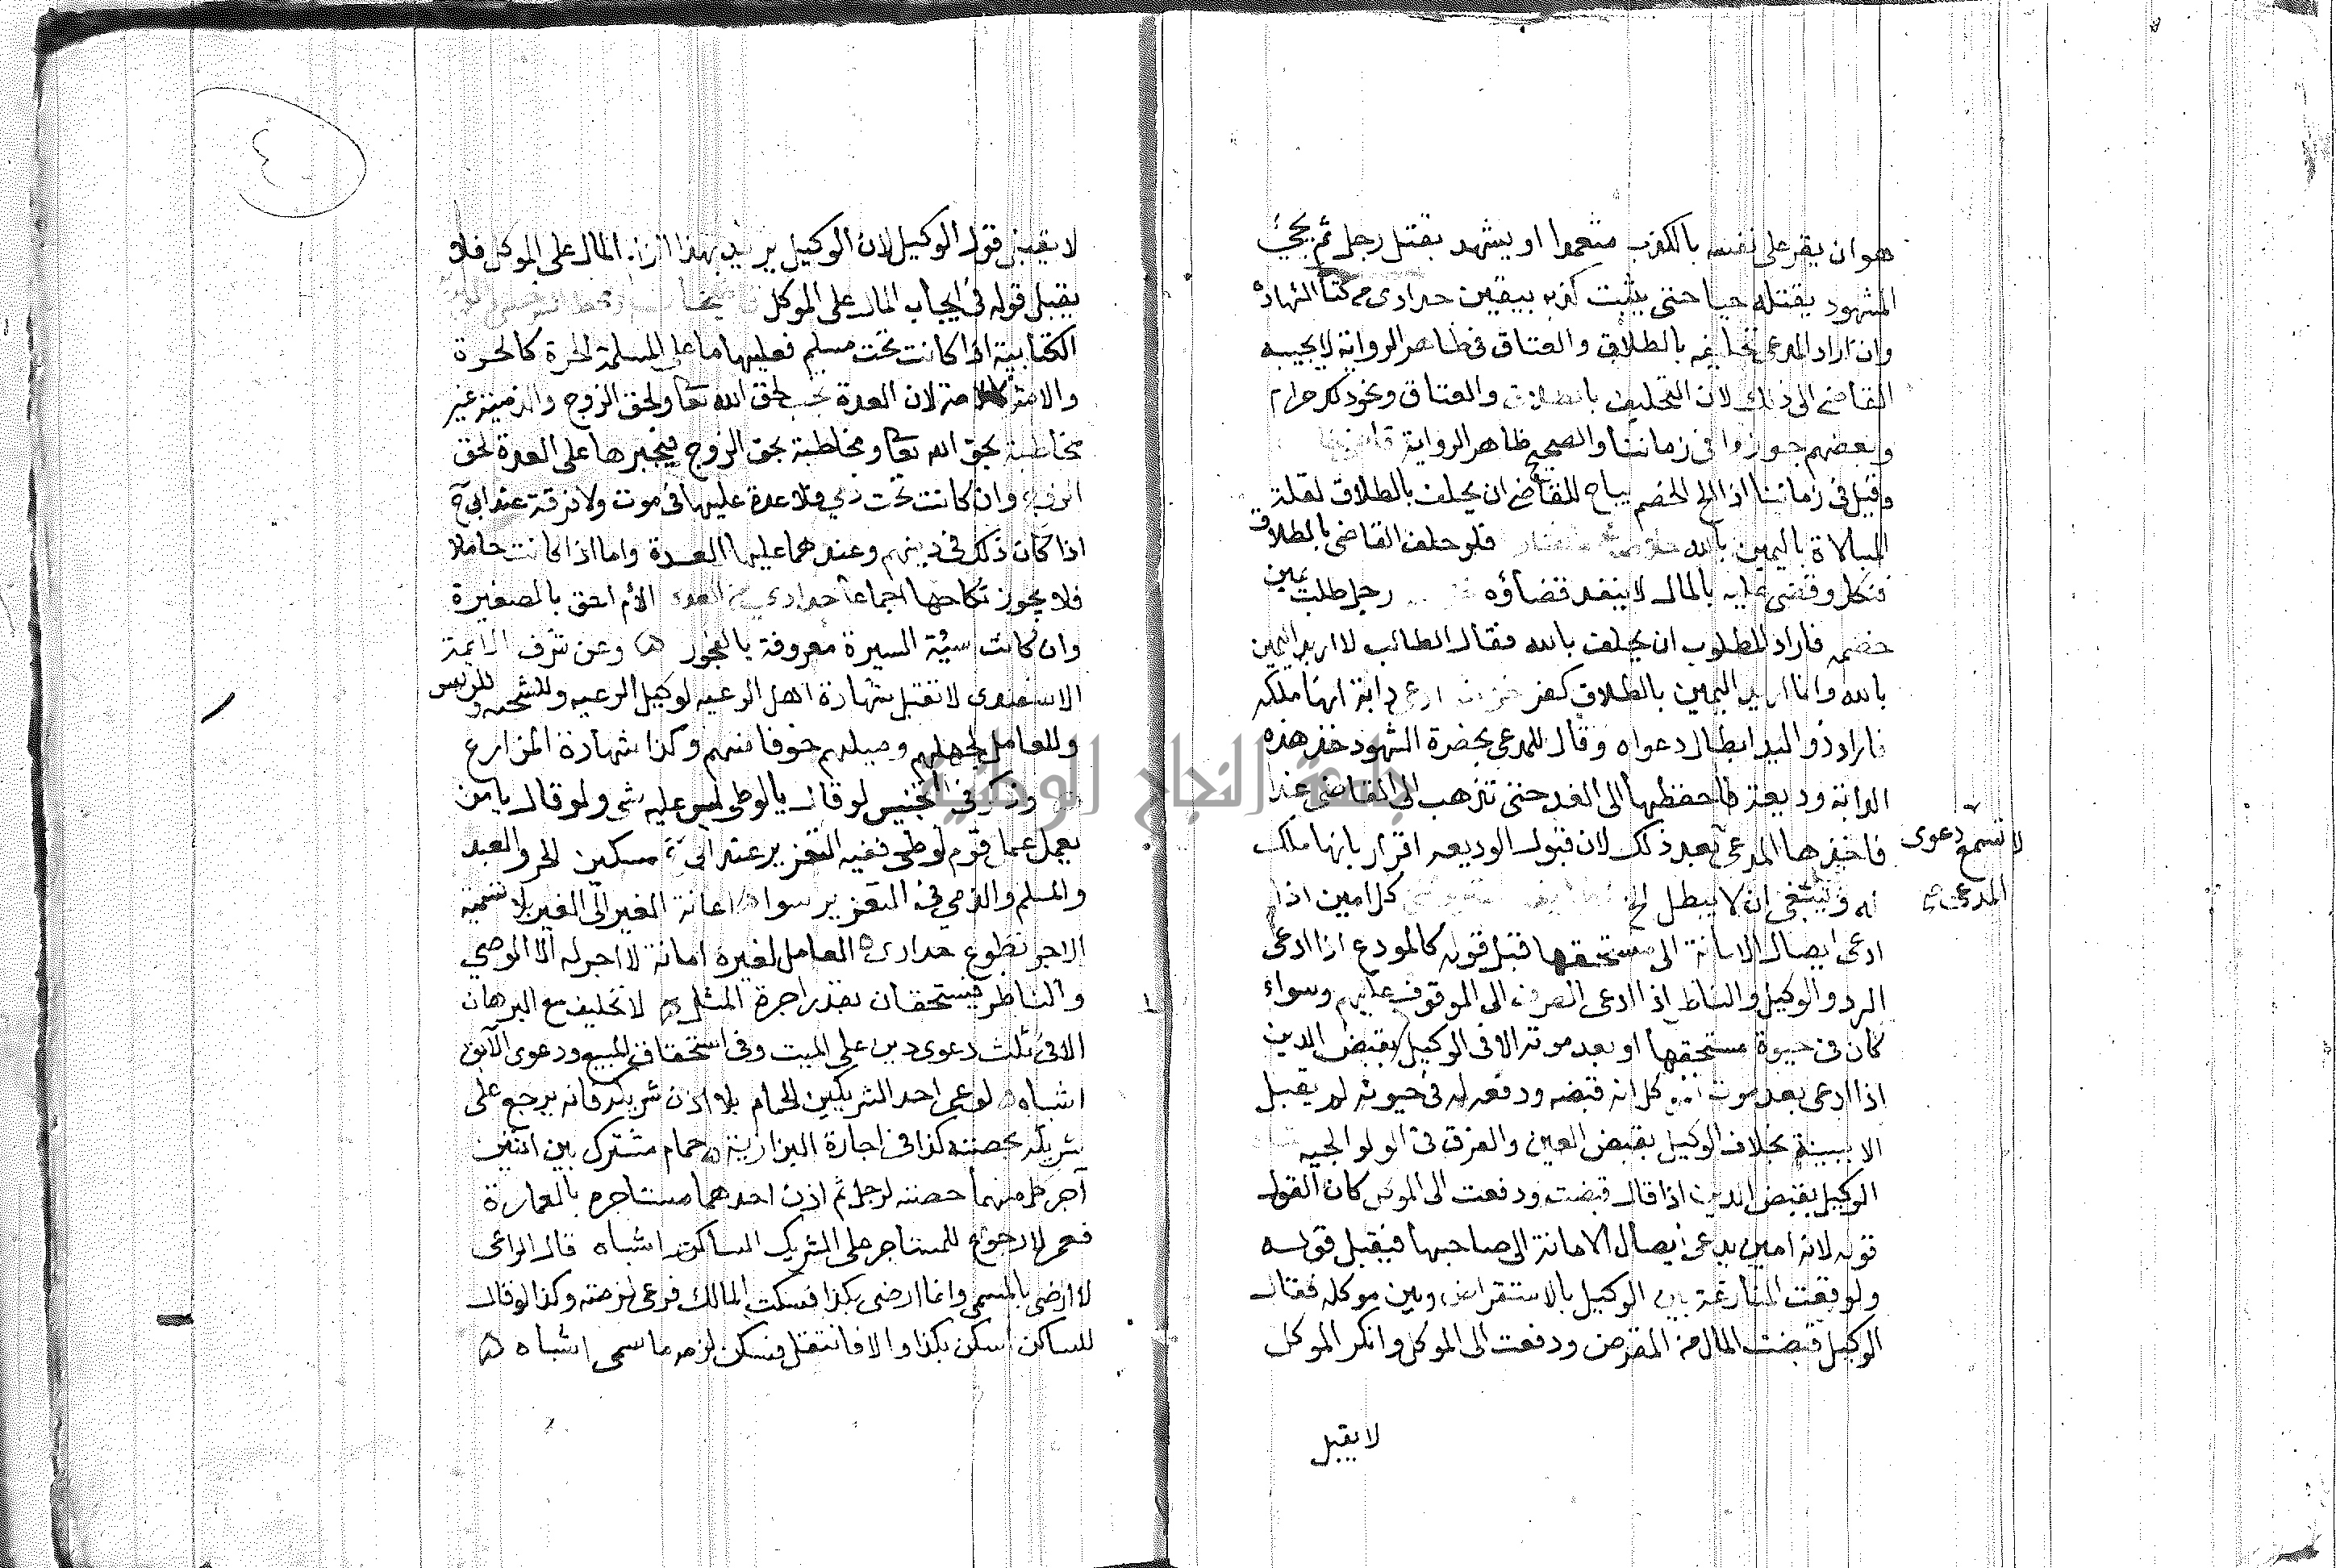 هو ان يقر على نفسه بالكذب متعمدا او يشهد بقتل رجل ثم يجئ
المشهود بقتله حيا حتى يثبت كذبه بيقين حدادى من كتاب الشهادة
وان اراد المدعى تحليفه بالطلاق والعتاق فى ظاهر الرواية لا يجيبه
القاضى الى ذلك لان التحليف بالطلاق والعتاق ونحو ذلك حرام
وبعضهم جوزوا فى زماننا والصحيح ظاهر الرواية
وقيل فى زماننا اذا الح الخصم يباح للقاضى ان يحلف بالطلاق لقلة
المبالاة باليمين بالله فلو حلف القاضى بالطلاق
فنكل وقضى عليه بالمال لا ينفد قضاؤه رجل طلب يمين
خصمه فاراد المطلوب ان يحلف بالله فقال الطالب لا اريد اليمين
بالله وانما اريد اليمين بالطلاق كفر دابة انها ملكه
فاراد ذو اليد ابطال دعواه وقال للمدعى بحضرة الشهود خذ هذه
الدابة وديعة فاحفظها الى الغد حتى تذهب الى القاضى غدا
فاخذها المدعى بعد ذلك لان قبول الوديعة اقرار بانها ملك
لا تسمع دعوى
المدعى صح
له وينبغى ان لا يبطل الخ كل امين اذا
ادعى ايصال الامانة الى مستحقها قبل قوله كالمودع اذا ادعى
الرد والوكيل والناظر اذا ادعى الصرف الى الموقوف عليهم وسواء
كان فى حيوة مستحقها او بعد موته الا فى الوكيل بقبض الدين
اذا ادعى بعد موت الموكل انه قبضه ودفعه له فى حيوته لم يقبل
الا ببينة بخلاف الوكيل بقبض العين والفرق فى الولوالجيه
الوكيل بقبض الدين اذا قال قبضت ودفعت الى الموكل كان القول
قوله لانه امين يدعى ايصال الامانة الى صاحبها فيقبل قوله
ولو وقعت المنازعة بين الوكيل بالاستقراض وبين موكله فقال
الوكيل قبضت المال من المقرض ودفعت الى الموكل وانكر الموكل
لا يقبل
لا يقبل قول الوكيل لان الوكيل يريد بهذا الزام المال على الموكل فلا
يقبل قوله فى ايجاب المال على الموكل
الكتابية اذا كانت تحت مسلم فعليها ما على المسلمة الحرة كالحرة
والامة كالامة لان العدة تجب لحق الله تعا ولحق الزوج والذمية غير
مخاطبة بحق الله تعا ومخاطبة بحق الزوج فيجبرها على العدة لحق
الزوج وان كانت تحت ذمي فلا عدة عليها فى موت ولا فرقة عند ابى ح
اذا كان ذلك فى دينهم وعندهما عليها العدة واما اذا كانت حاملا
فلا يجوز نكاحها اجماعا حدادى من العدة الأم احق بالصغيرة
وان كانت سيئة السيرة معروفة بالفجور وعن شرف الايمة
الاسفندرى لا تقبل شهادة اهل الرعيه لوكيل الرعيه وللشحنه وللرئيس
وللعامل لجهلهم وميلهم خوفا منهم وكذا شهادة المزارع
وذكر فى التجنيس لو قال يا لوطى ليس عليه شى ولو قال يا من
يعمل عمل قوم لوط ففيه التعزير عند ابى ح مسكين الحر والعبد
والمسلم والذمي فى التعزير سواء اعانة الغير الى الغير بلا تسمية
الاجر تطوع حدادى العامل لغيره امانة لا اجر له الا الوصي
والناظر فيستحقان بقدر اجرة المثل لا تحليف مع البرهان
الا فى ثلث دعوى دين على الميت وفى استحقاق المبيع ودعوى الآبق
اشباه لو عمر احد الشريكين الحمام بلا اذن شريكه فانه يرجع على
شريكه بحصته كذا فى اجارة البزازية حمام مشترك بين اثنين
آجر كل منهما حصته لرجل ثم اذن احدهما مستاجره بالعمارة
فعمر لا رجوع للمستاجر على الشريك الساكت اشباه قال الراعى
لا ارضى بالمسمى وانما ارضى بكذا فسكت المالك فرعى لزمته وكذا لو قال
للساكن اسكن بكذا والا فانتقل فسكن لزمه ما سمى اشباه